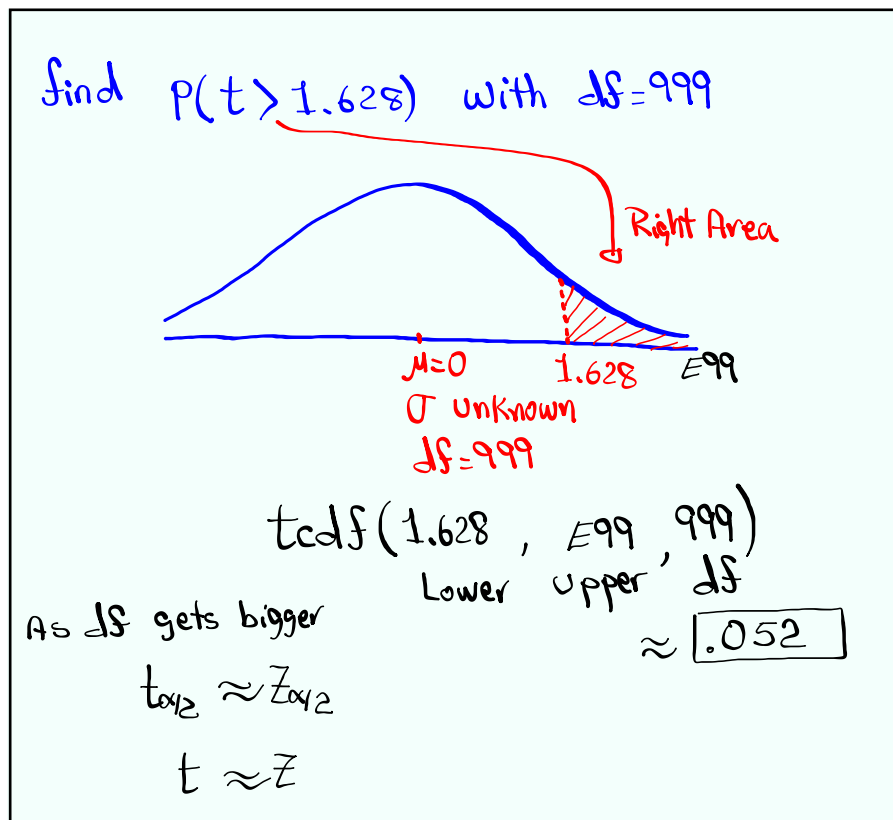 find P(t > 1.628) with df=999
Right Area
μ=0
1.628
E99
σ unknown
df=999
tcdf(1.628 , E99 , 999)
Lower upper df
≈ .052
As df gets bigger
tα/2 ≈ Zα/2
t ≈ Z